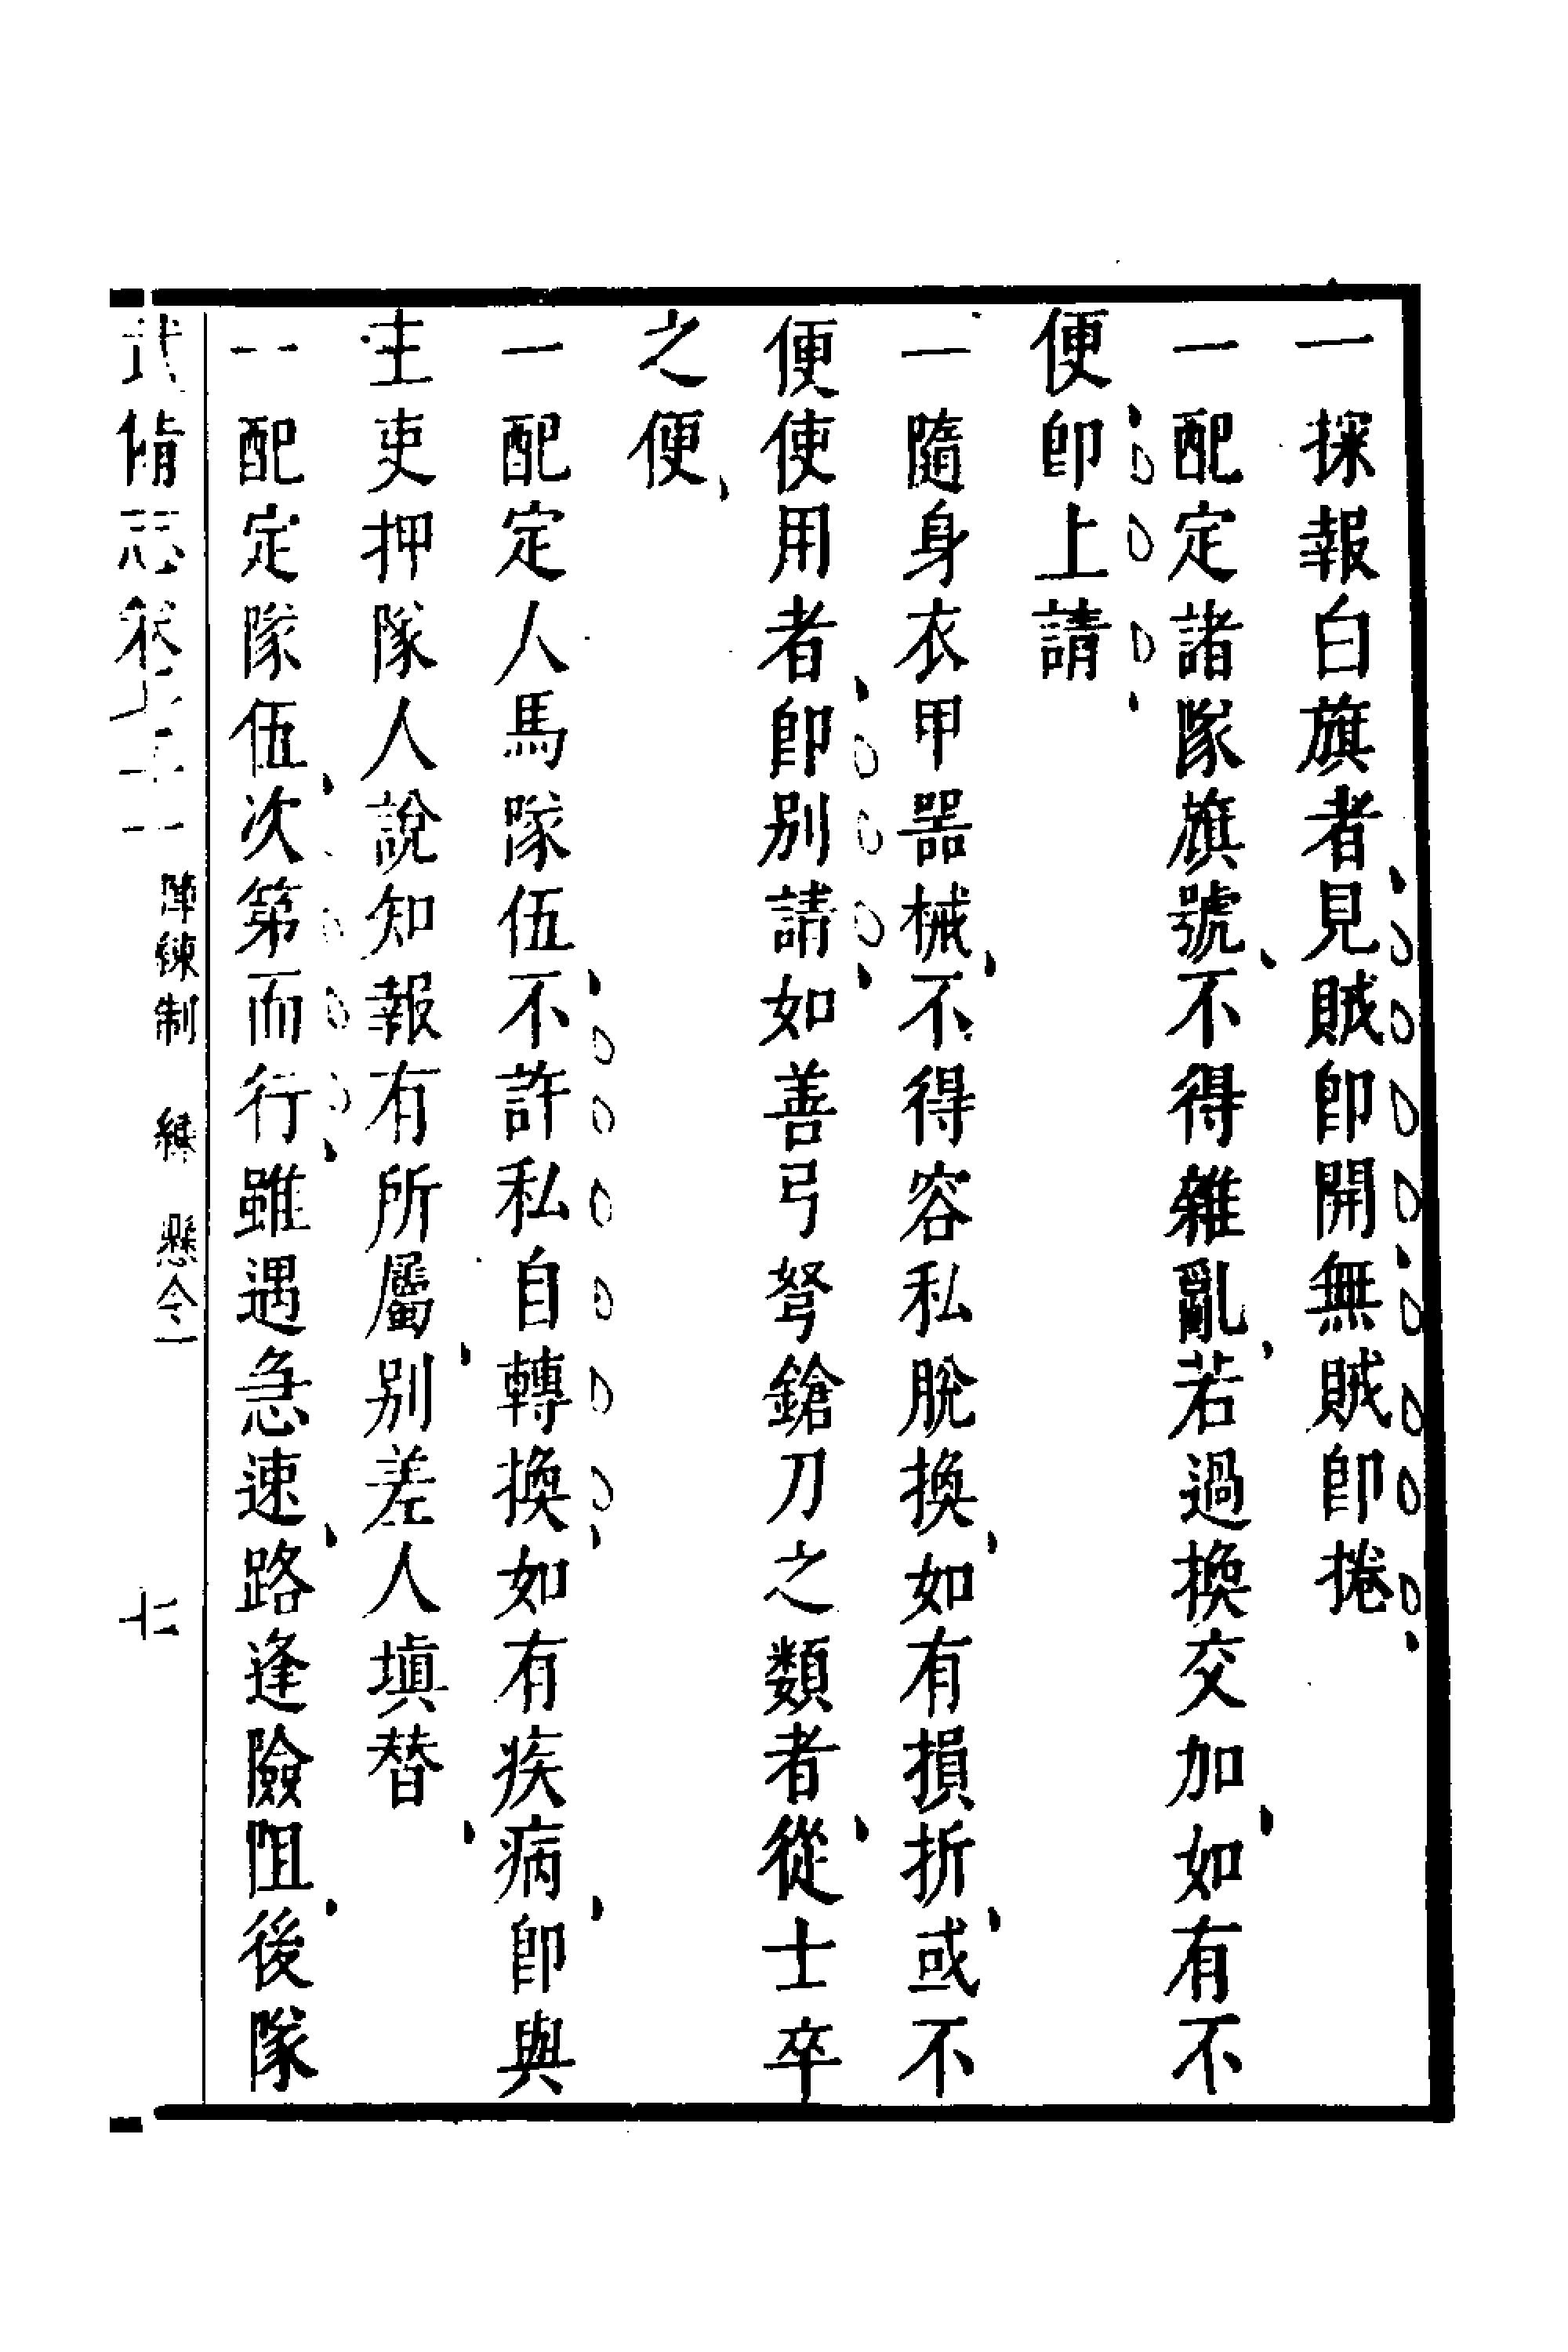 一探報白旗者見賊卽開無賊卽捲
一配定諸隊旗號不得雜亂若過換交加如有不
便卽上請
一隨身衣甲器械不得容私脫換如有損折或不
便使用者卽別請如善弓弩鎗刀之類者從士卒
之便
一配定人馬隊伍不許私自轉換如有疾病卽與
主吏押隊人說知報有所屬別差人塡替
一配定隊伍次第而行雖遇急速路逢險阻後隊
武備志卷 陣練制 練 懸令一 七